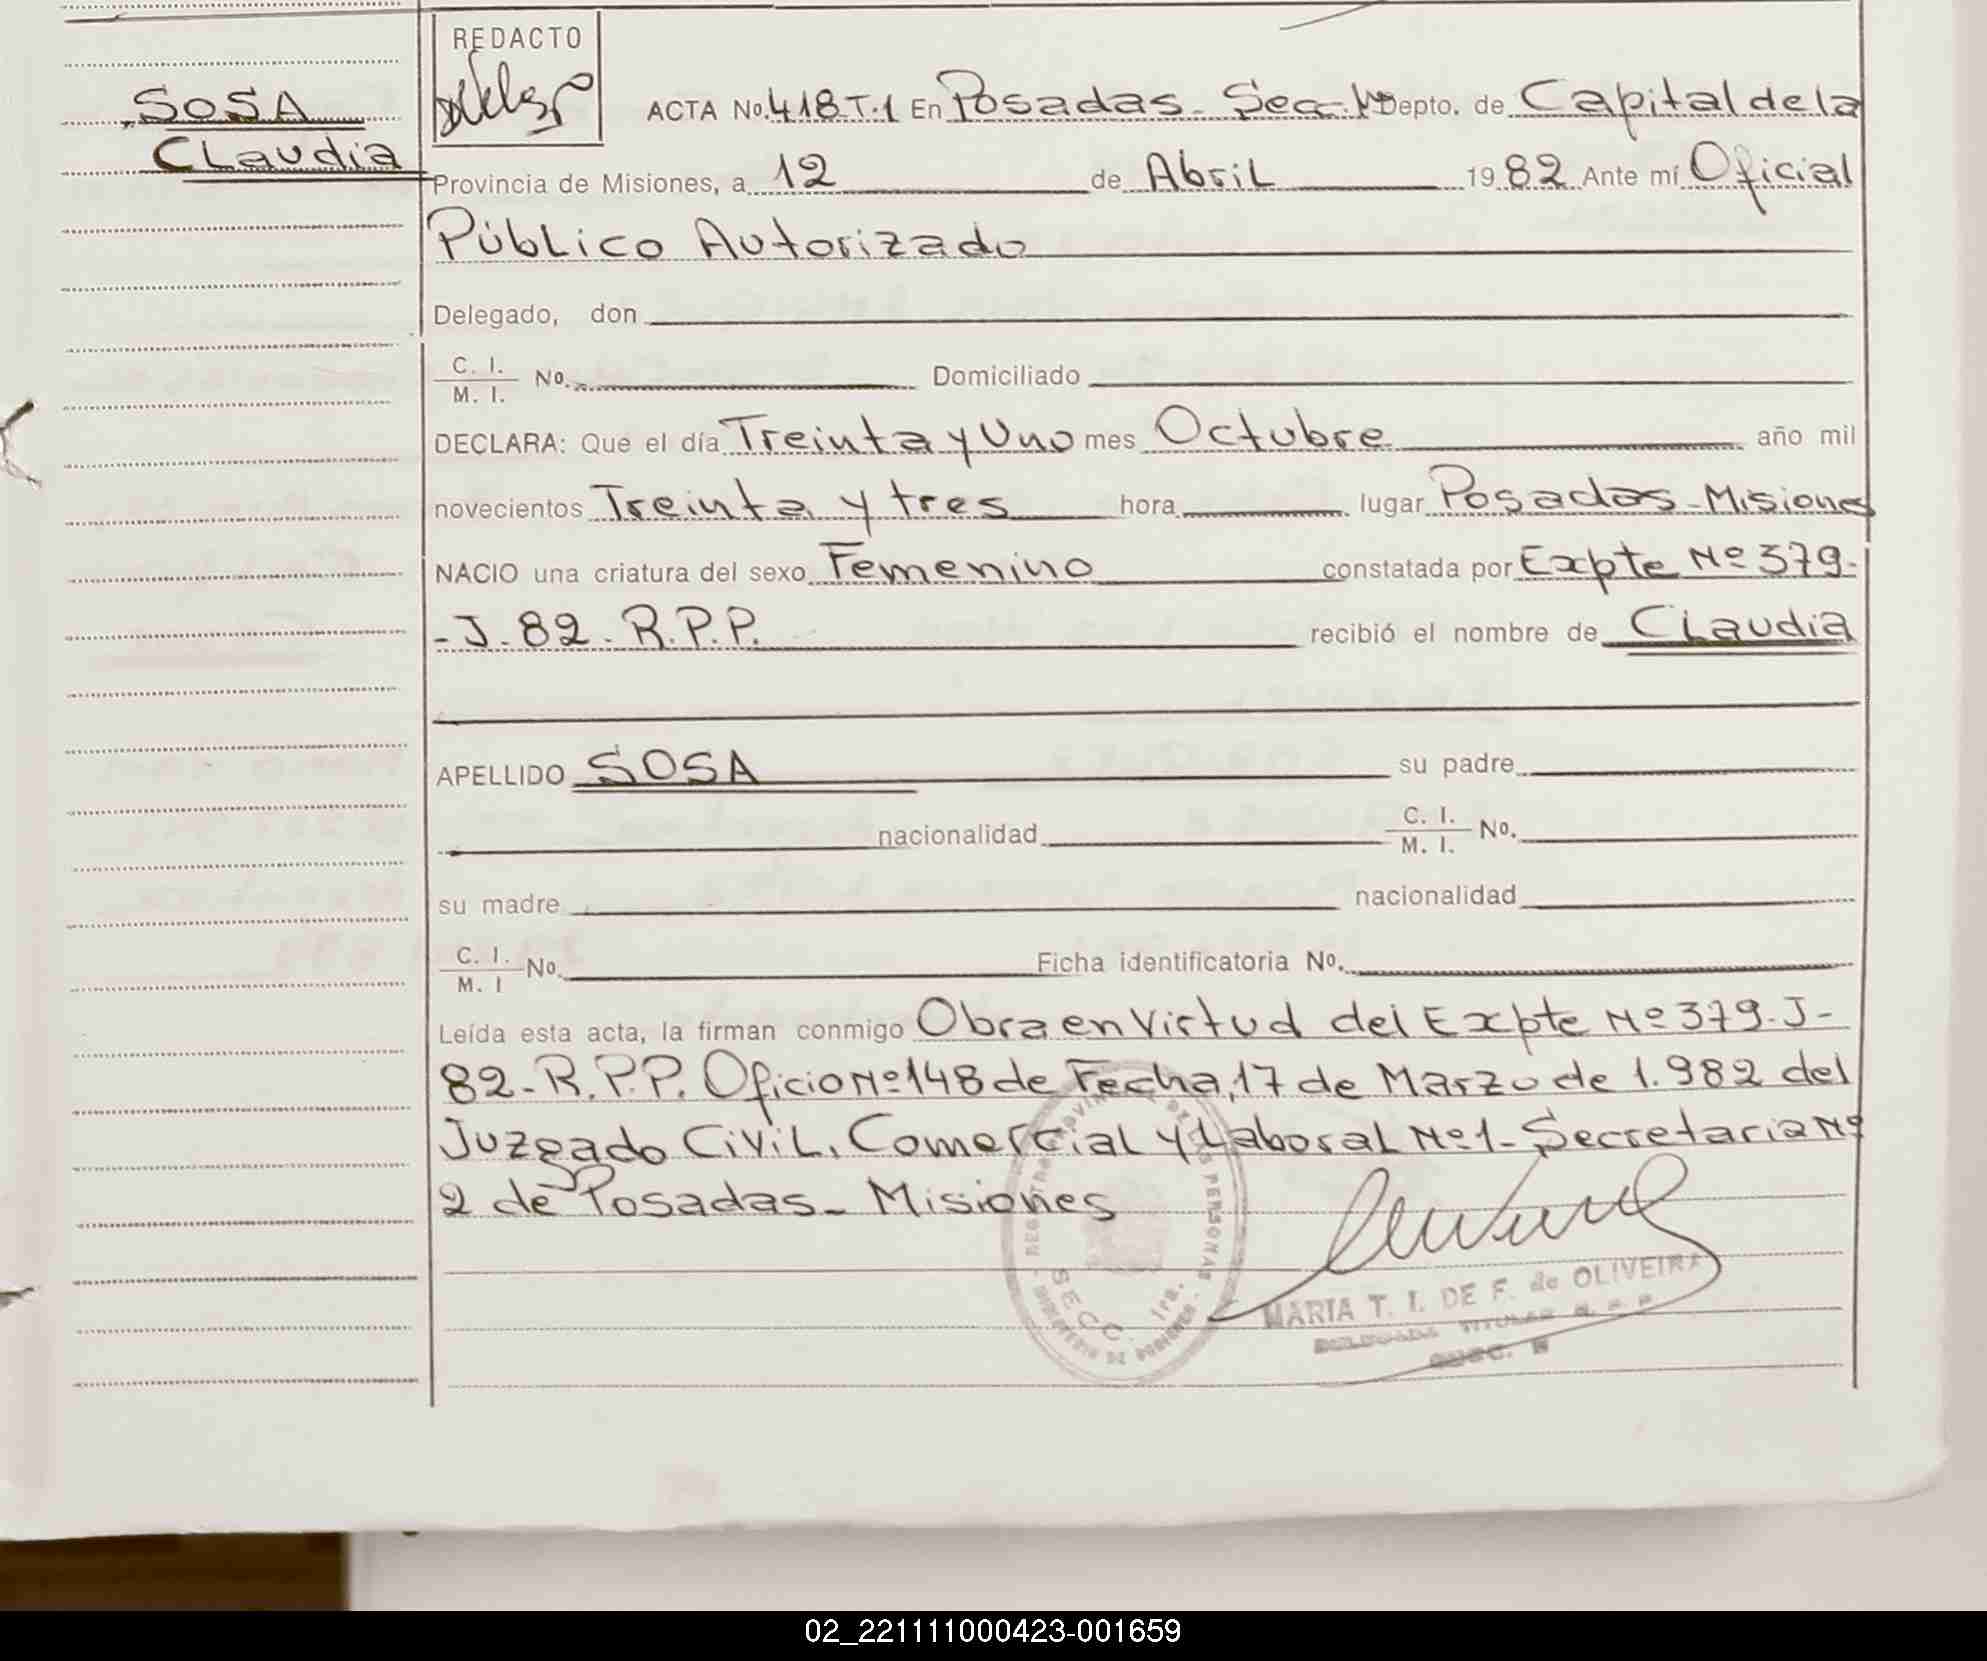 REDACTO
SOSA
CLaudia
ACTA No. 418 T.1 En Posadas - Secc. 1ª Depto. de Capital de la
Provincia de Misiones, a 12 de Abril 1982 Ante mí Oficial
Público Autorizado
Delegado, don
C. I. / M. I. No. Domiciliado
DECLARA: Que el día Treinta y Uno mes Octubre año mil
novecientos Treinta y tres hora lugar Posadas - Misiones
NACIO una criatura del sexo Femenino constatada por Expte Nº 379-
-J. 82. R.P.P. recibió el nombre de CLaudia
APELLIDO SOSA su padre
nacionalidad C. I. / M. I. No.
su madre nacionalidad
C. I. / M. I No. Ficha identificatoria No.
Leída esta acta, la firman conmigo Obra en Virtud del Expte Nº 379-J-
82-R.P.P. Oficio Nº 148 de Fecha, 17 de Marzo de 1.982 del
Juzgado CiviL, Comercial y Laboral Nº 1- Secretaria Nº
2 de Posadas - Misiones
REGISTRO PROVINCIAL DE LAS PERSONAS
SECC. 1ra.
MARIA T. I. DE F. de OLIVEIRA
02_221111000423-001659